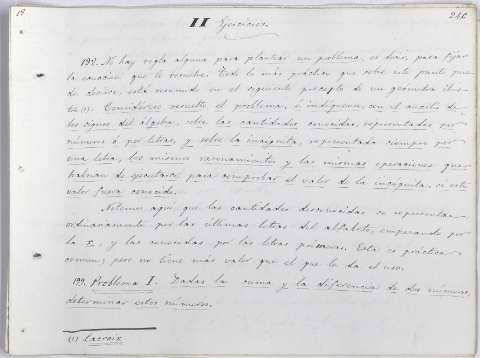 18
240
II Ejercicios
192. No hay regla alguna para plantear un problema, es decir, para fijar
la ecuacion que lo resuelve. Todo lo más práctico que sobre este punto pue-
de decirse, está resumido en el siguiente precepto de un geómetra ilus-
tre (1). Considérese resuelto el problema, é indíquense, con el auxilio de
los signos del álgebra, sobre las cantidades conocidas, representadas por
números ó por letras, y sobre la incógnita, representada siempre por
una letra, los mismos razonamientos y las mismas operaciones que
habrian de ejecutarse para comprobar el valor de la incógnita, si este
valor fuera conocido.
Notemos aquí que las cantidades desconocidas se representan
ordinariamente por las últimas letras del alfabeto, empezando por
la x, y las conocidas por las letras primeras. Esta es práctica
comun; pero no tiene más valor que el que le da el uso.
193. Problema I. Dadas la suma y la diferencia de dos números,
determinar estos números.
(1) Lacroix